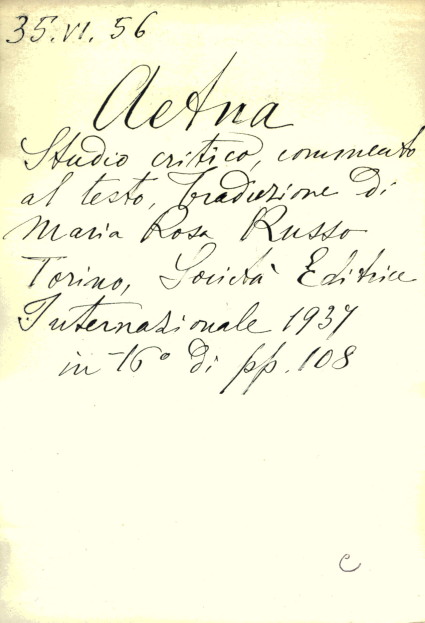 35.VI.56
Aetna
Studio critico, commento
al testo, Traduzione di
Maria Rosa Russo
Torino, Società Editrice
Internazionale 1937
in-16° di pp. 108
C